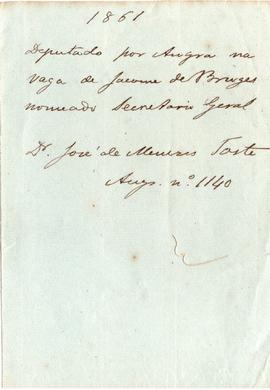 1861
Deputado por Angra na
vaga de Jacome de Bruges
nomeado Secretario Geral
Dr. José de Menezes Toste
Ang. nº 1140